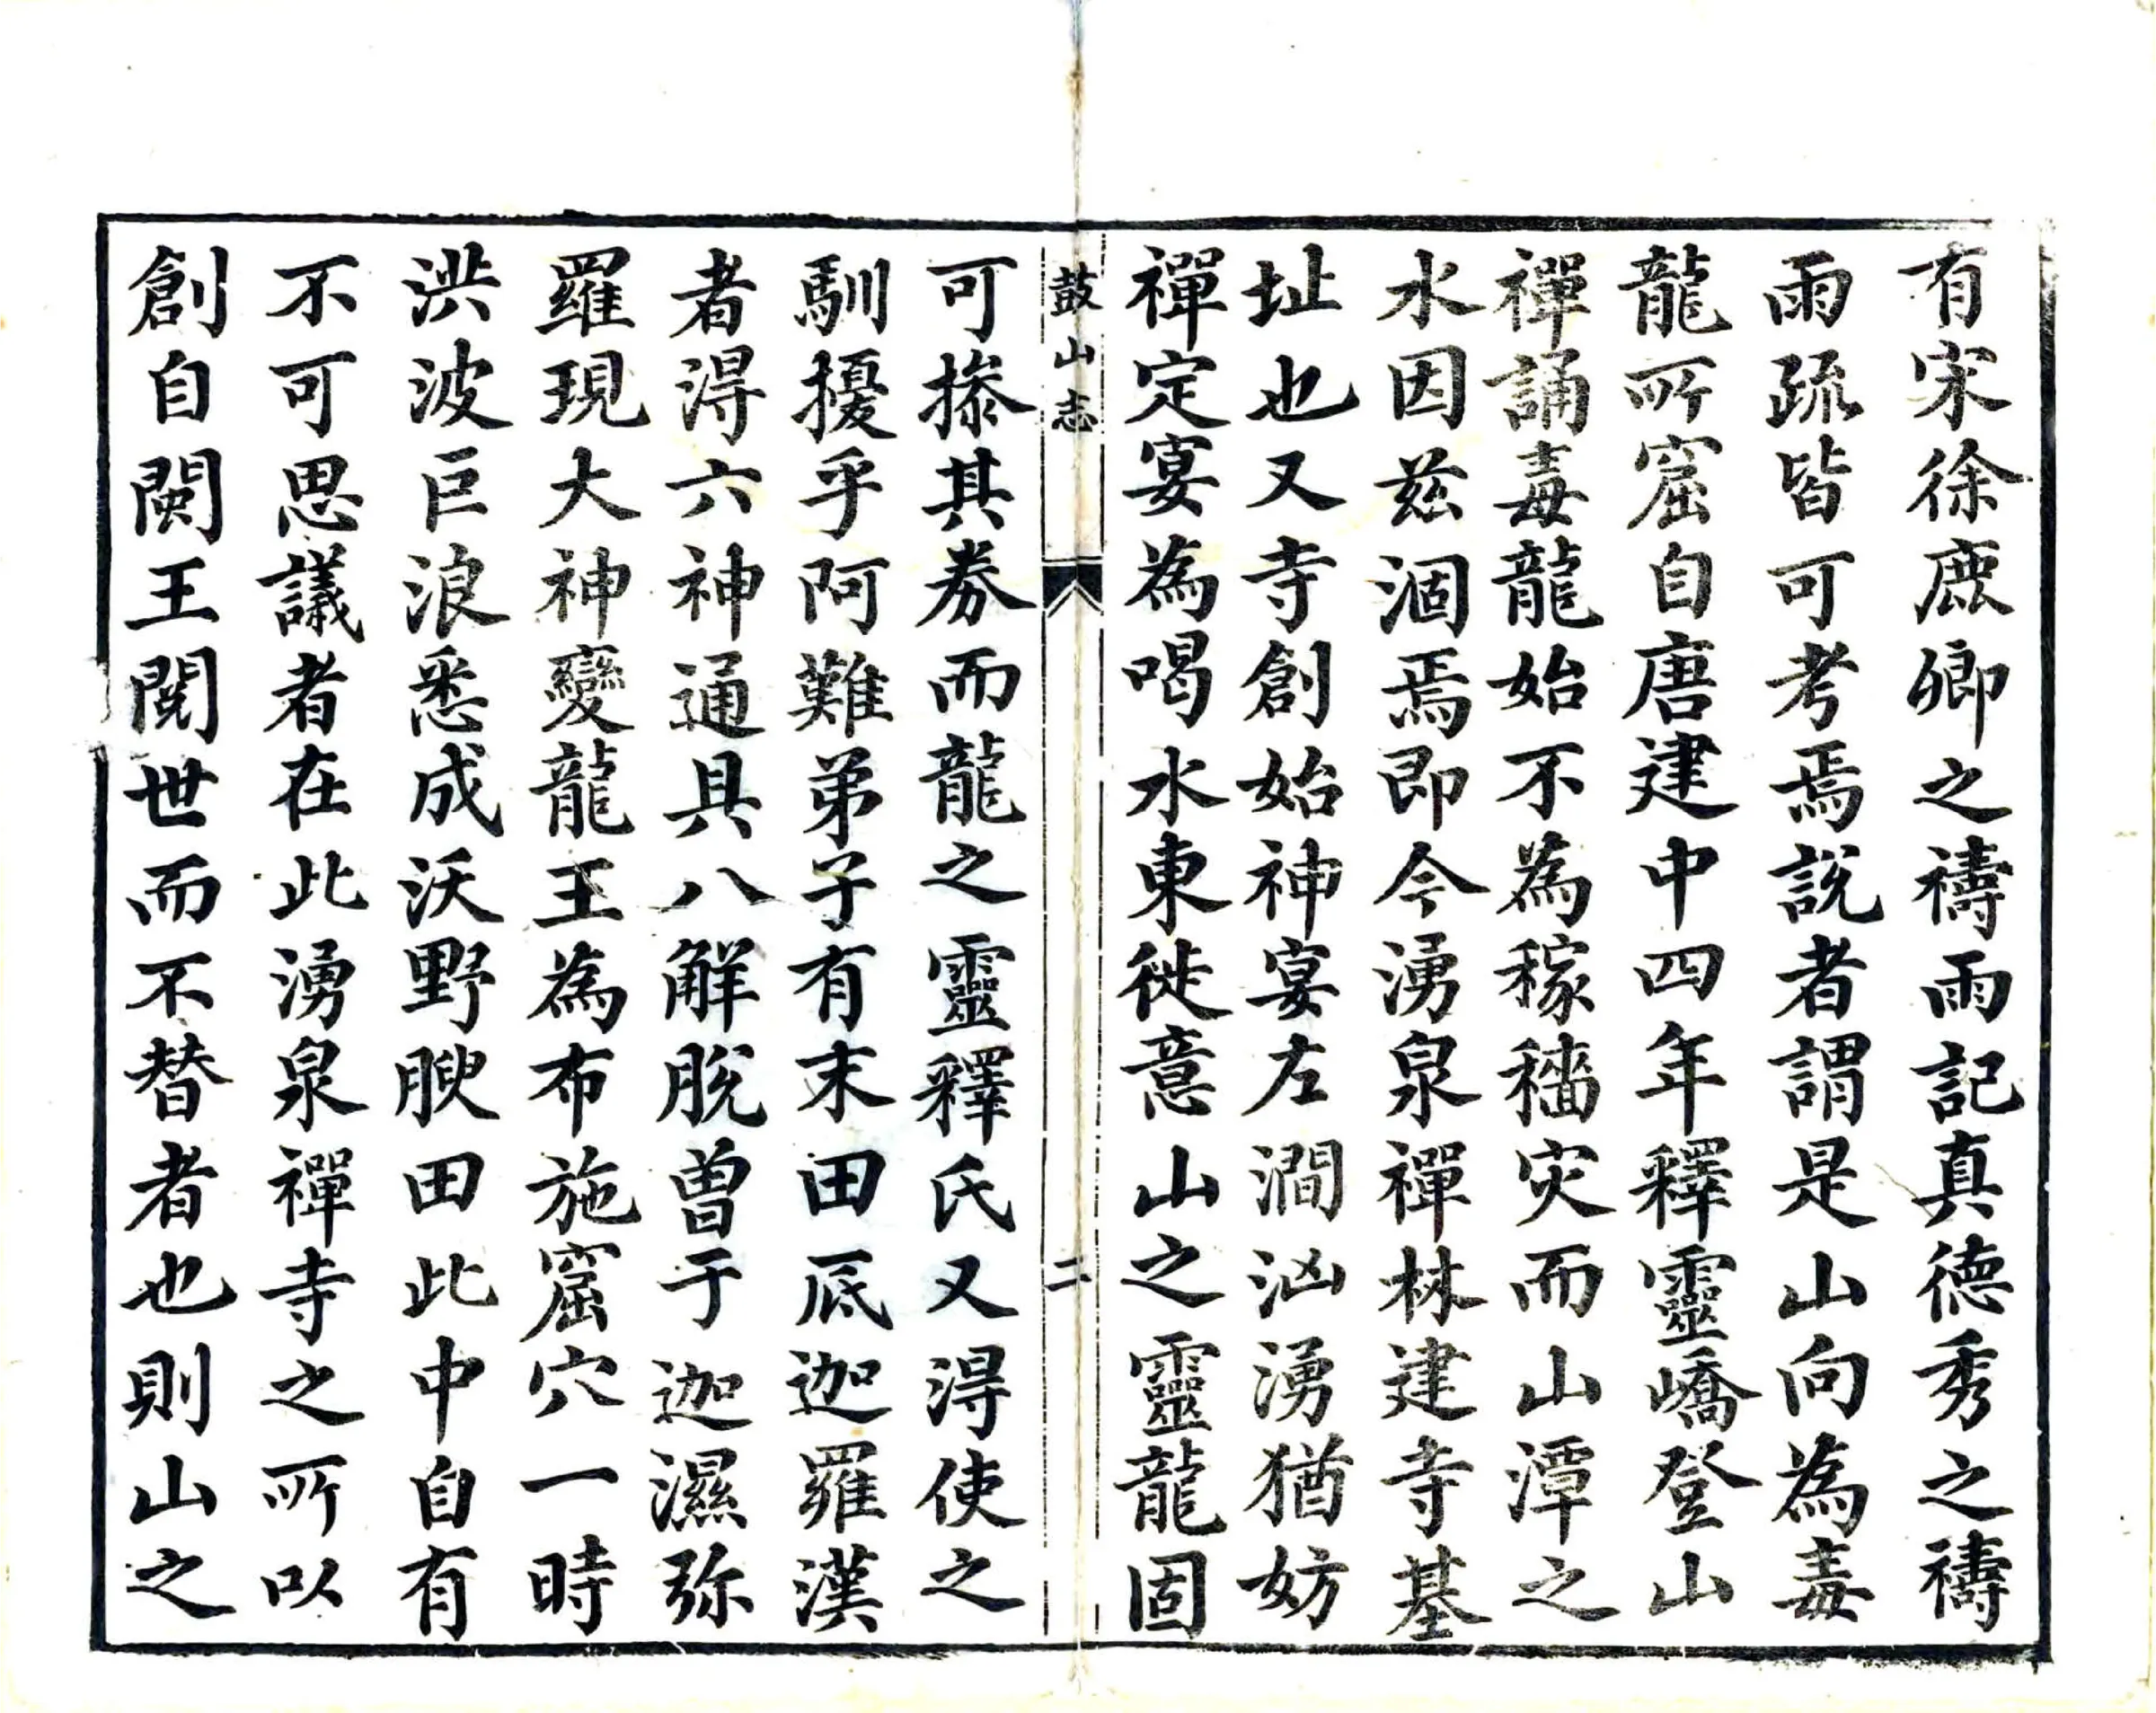 有宋徐鹿卿之禱雨記真德秀之禱
雨疏皆可考焉說者謂是山向為毒
龍所窟自唐建中四年釋靈嶠登山
禪誦毒龍始不為稼穡灾而山潭之
水因茲涸焉即今湧泉禪林建寺基
址也又寺創始神宴左澗汹湧猶妨
禪定宴為喝水東徙意山之靈龍固
鼓山志
二
可掺其券而龍之靈釋氏又淂使之
馴擾乎阿難弟子有末田底迦羅漢
者淂六神通具八解脫曾于迦濕弥
羅現大神變龍王為布施窟穴一時
洪波巨浪悉成沃野腴田此中自有
不可思議者在此湧泉禪寺之所以
創自閩王閱世而不替者也則山之